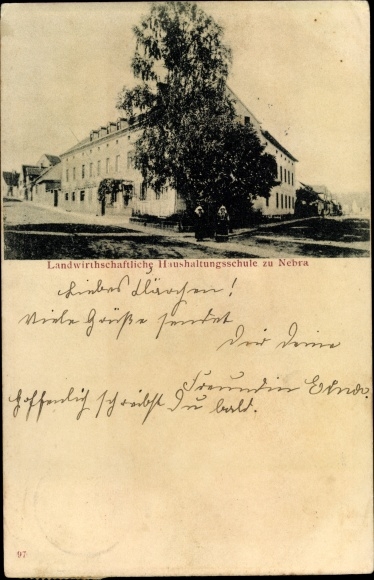 Landwirthschaftliche Haushaltungsschule zu Nebra
Liebes Klärchen!
Viele Grüße sendet
Dir Deine
Freundin Erna.
Hoffenlich schreibst Du bald.
97